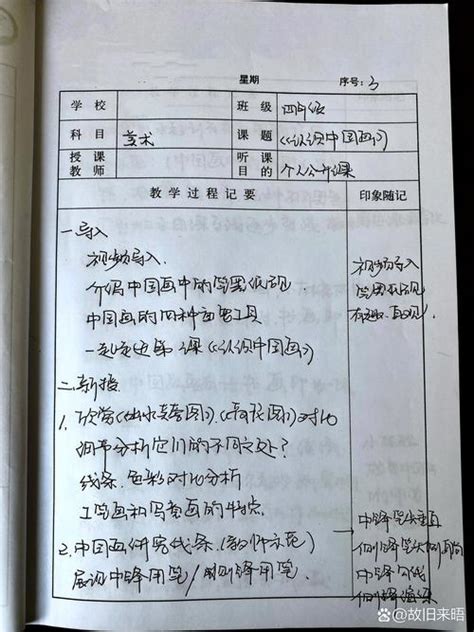 星期 序号: 3
学校 班级 四年级
科目 美术 课题 《认识中国画》
授课教师 听课目的 个人公开课
教学过程记要 印象随记
一.导入
视频导入.
介绍中国画中的笔墨纸砚
中国画的四种主要工具
一起走进课《认识中国画》
二.新授
1. 欣赏《出水芙蓉图》.《荷花图》对比
细节分析它们的不同之处?
线条.色彩对比分析
工笔画和写意画的特点.
2.中国画研究线条.(教师示范)
展示中锋用笔/侧锋用笔.
视频导入
笔墨纸砚
有趣.直观
中锋笔尖垂直
侧锋笔尖
中锋勾线
侧锋渲染
@故旧来晤